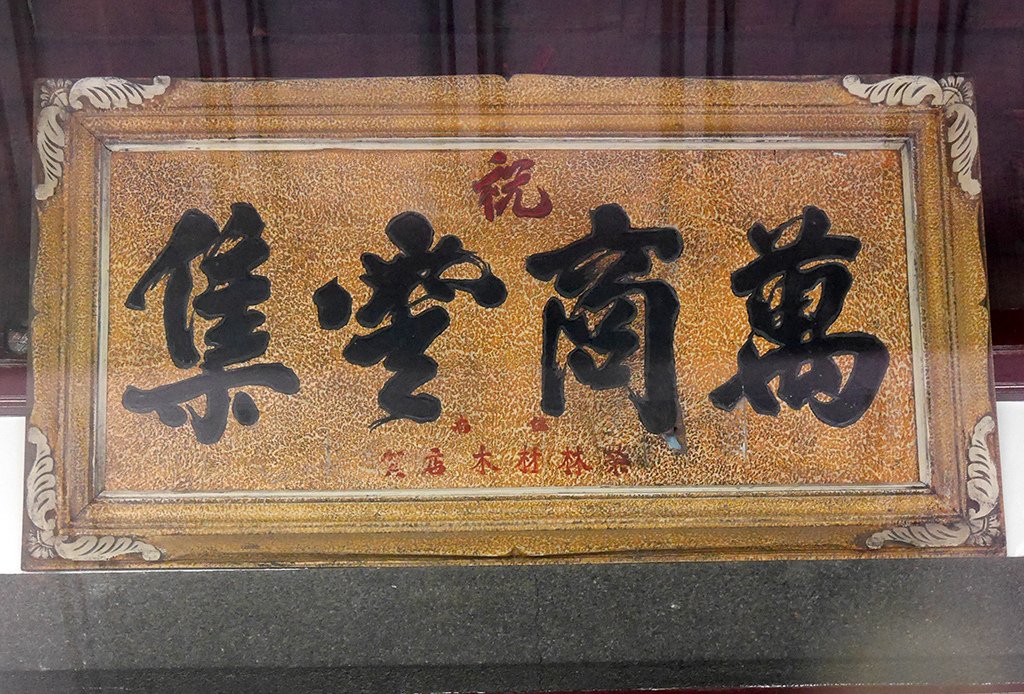 祝
萬商雲集
榮林材木店